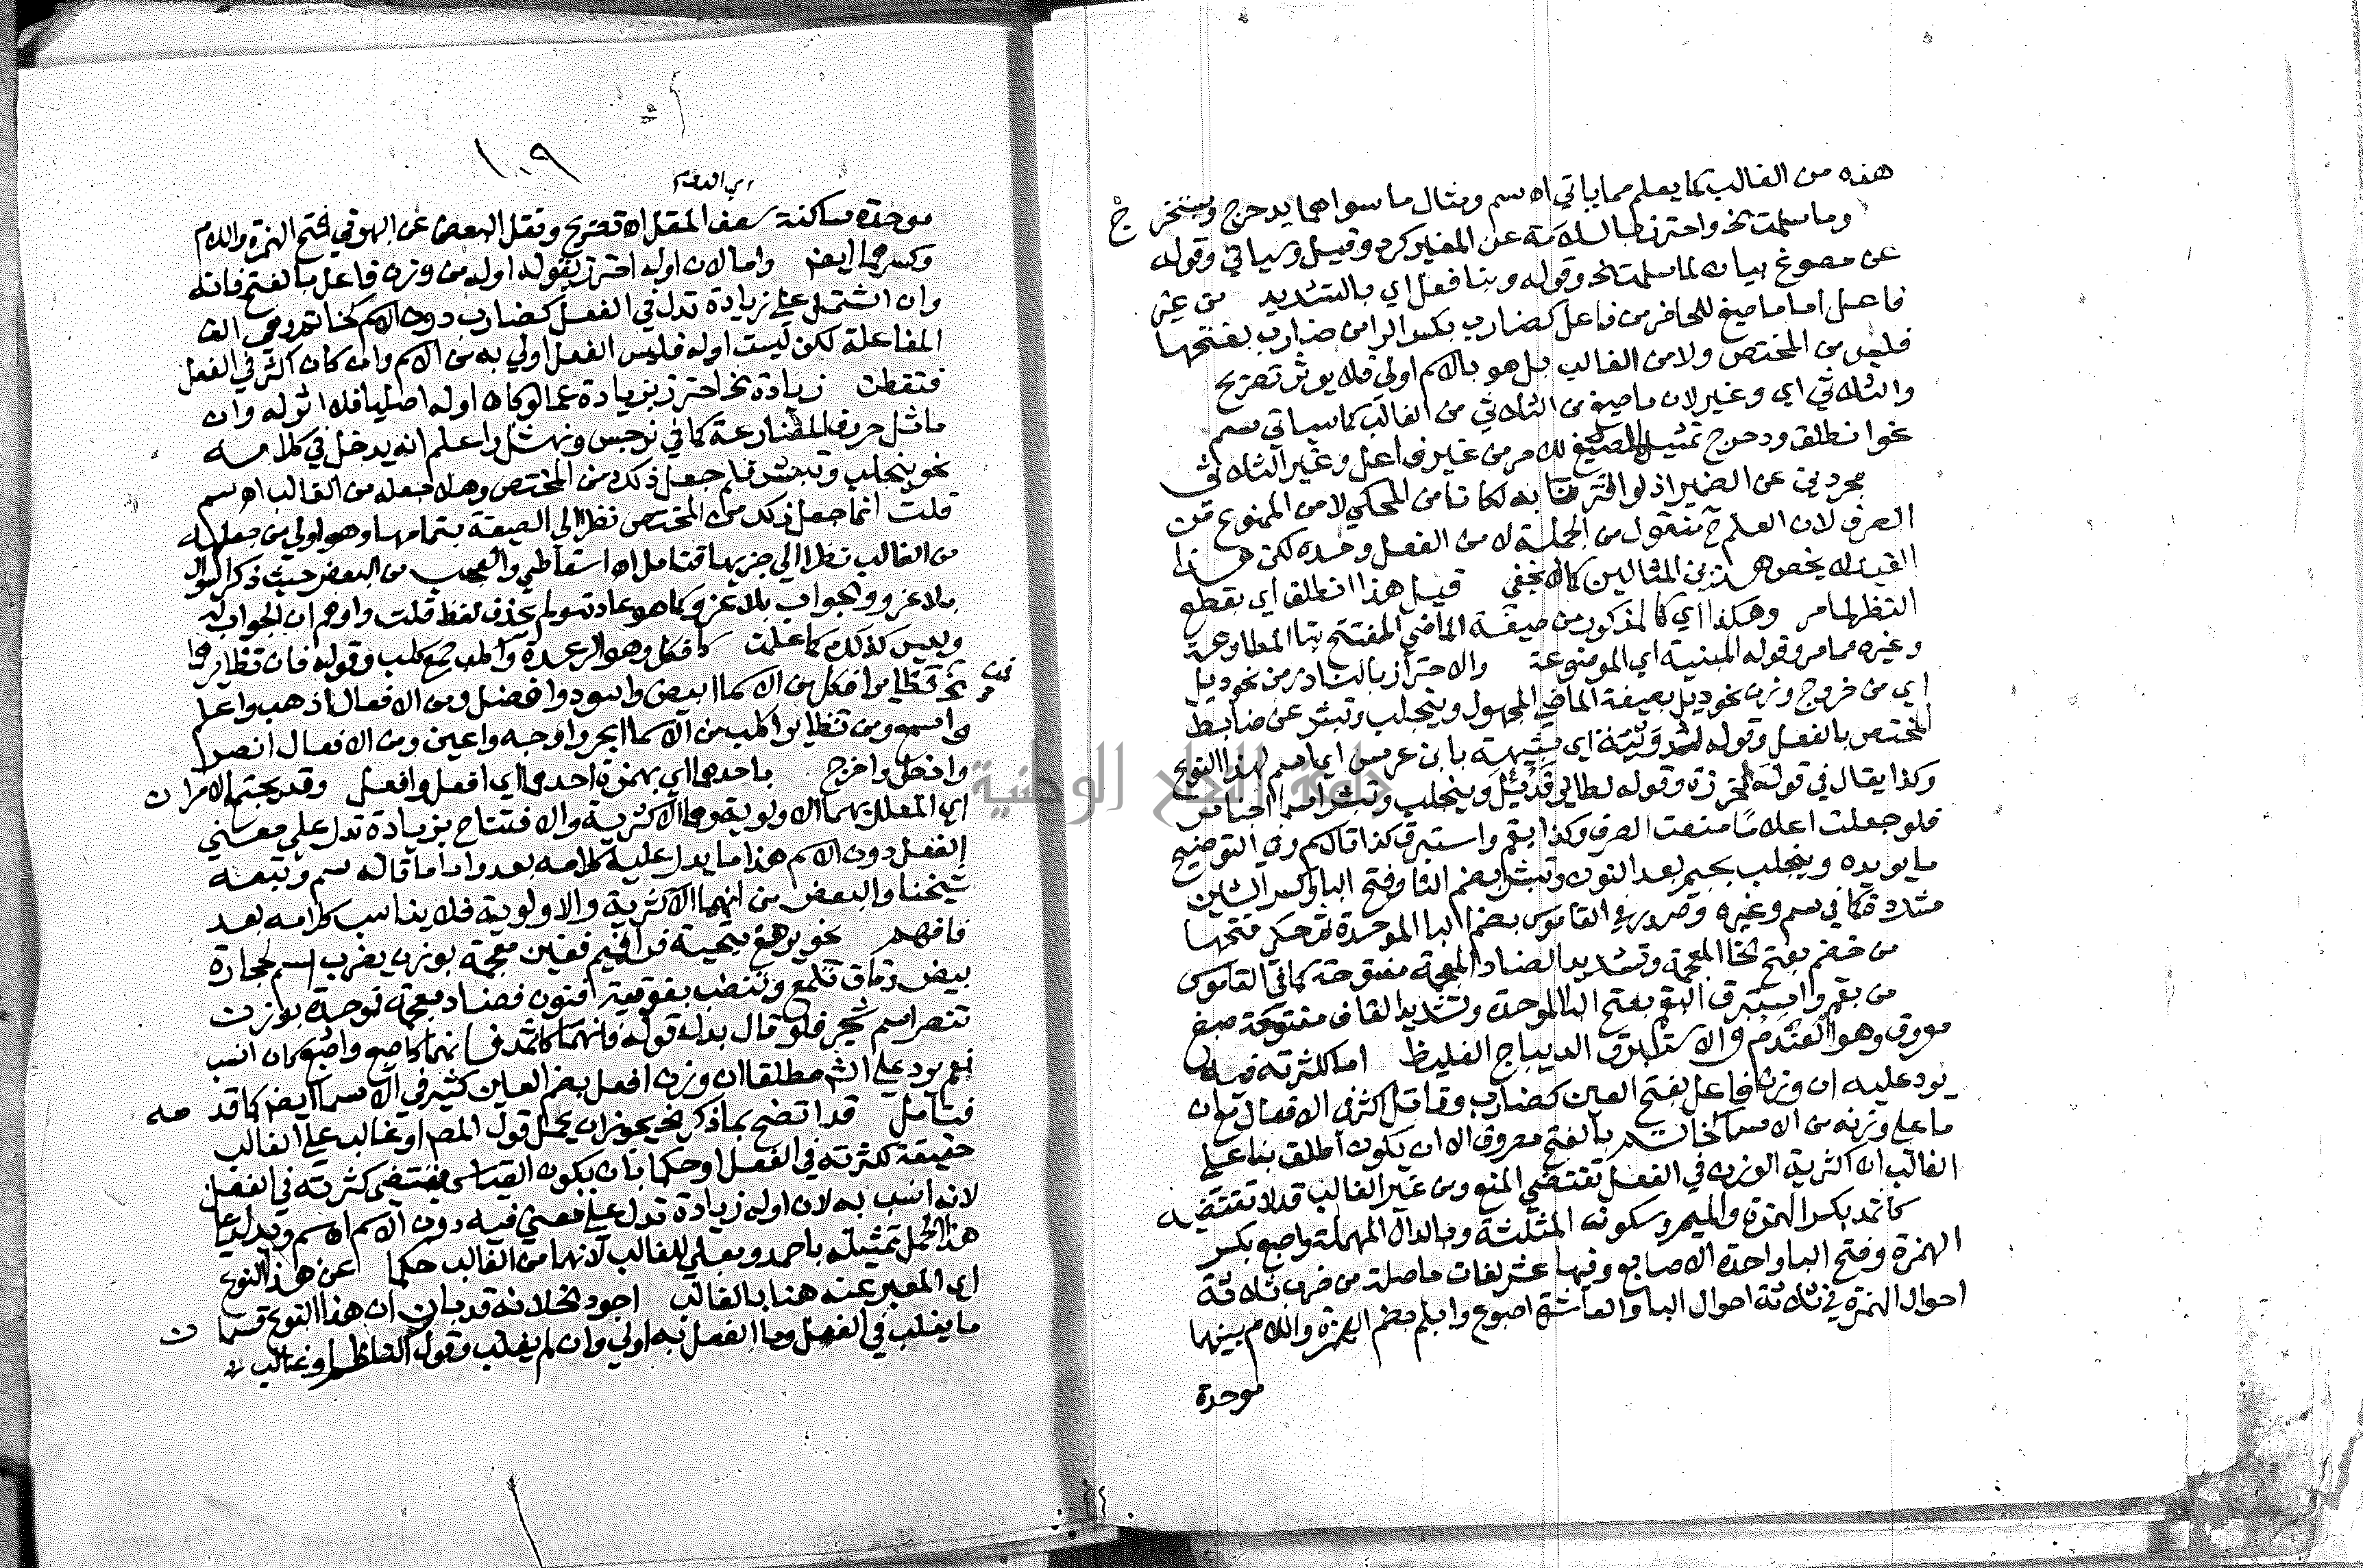 هذه من الغالب كما يعلم مما ياتي اه سم ومثال ما سواهما يدحرج ويستخرج
وما سلمت الخ واحترز بالسلامة عن المغير كرد وقيل وسياتي وقوله
عن مصوغ بيان لما سلمت الخ وقوله وبنا فعل اي بالتشديد من غير
فاعل اما ما صيغ للحاضر من فاعل كضارب بكسر الرا من ضارب بفتحها
فليس من المختص ولا من الغالب بل هو بالاسم اولي فلا يوثر تصريح
والثلاثي اي وغير لان ما صيغ من الثلاثي من الغالب كما سياتي سم
نحو انطلق ودحرج تمثيل للمصيغ للامر من غير فاعل وغير الثلاثي
مجردين عن الضمير اذ لو اقترنا به لكانا من المحكي لا من الممنوع من
الصرف لان العلم ح منقول من الجملة لا من الفعل وحده لكن هذا
القيد لا يخص هذين المثالين كما لا يخفي قيل هذا انطلق اي بقطع
النظر لما مر وهكذا اي كالمذكور من صيغة الماضي المفتتح بتا المطاوعة
وغيره مما مر وقوله المبنية اي الموضوعة والاحتراز بالنادر من نحو ديل
اي من خروج وزن نحو ديل بصيغة الماضي المجهول وينجلب وتبشر عن ضابط
المختص بالفعل وقوله لدويبة اي شبيهة بابن عرس اي اسم لهذا النوع
وكذا يقال في قوله لخرزة وقوله لطاير قد ئيل وينجلب وتبشر اسما اجناس
فلو جعلت اعلاما منعت الصرف وكذا بقم واستبرق كذا قالهم وفي التوضيح
ما يويده وينجلب بجيم بعد النون وتبشر بضم التا وفتح البا وكسر الشين
مشددة كما في سم وغيره وصدر في القاموس بضم البا الموحدة ثم حكي فتحها
من خضم بفتح الخا المعجمة وتشديد الضاد المعجمة مفتوحة كما في القاموس
من بقم واستبرق البقم بفتح البا الموحدة وتشديد القاف مفتوحة صبغ
معروف وهو العندم والاستبرق الديباج الغليظ اما لكثرته فيه
يرد عليه ان وزن فاعل بفتح العين كضارب وقاتل اكثر في الافعال مع ان
ما علي وزنه من الاسما كخاتم بالفتح مصروف الا ان يكون اطلق بنا علي
الغالب ان اكثرية الوزن في الفعل تقتضي المنع ومن غير الغالب قد لا تقتضيه
كاثمد بكسر الهمزة والميم وسكون المثلثة وبالدال المهملة واصبع بكسر
الهمزة وفتح البا واحدة الاصابع وفيها عشر لغات حاصلة من ضرب ثلاثة
احوال الهمزة في ثلاثة احوال البا والعاشرة اصبوع وابلم بضم الهمزة واللام بينهما
موحدة
١٠٩
موحدة ساكنة سعف المقل اه تصريح ونقل البعض عن البهوتي فتح الهمزة واللام
وكسرهما ايضا واما لان اوله احترز بقوله اوله من وزن فاعل بالفتح فانه
وان اشتمل علي زيادة تدل في الفعل كضارب دون الاسم كخاتم وهي الف
المفاعلة لكن ليست اوله فليس الفعل اولي به من الاسم وان كان اكثر في الفعل
فتفطن زيادة الخ احترز بزيادة عما لو كان اوله اصليا فلا اثر له وان
ماثل حرف المضارعة كما في نرجس ونهشل واعلم انه يدخل في كلامه
نحو ينجلب وتبشر فلم جعل ذلك من المختص وهلا جعله من الغالب اه سم
قلت انما جعل ذلك من المختص نظرا الي الصيغة بتمامها وهو اولي من جعله
من الغالب نظرا الي جزيها فتامل اه اسقاطي والعجب من البعض حيث ذكر السوال
بلا عزو والجواب بلا عزو كما هو عادته ولم يحذف لفظ قلت واوهم ان الجواب له
وليس كذلك كما علمت كافكل وهو الرعدة واكلب جمع كلب وقوله فان نظايرهما
الخ فنظاير افكل من الاسما ابيض واسود وافضل ومن الافعال اذهب واعلم
واسمع ومن نظاير اكلب من الاسما ابحر واوجه واعين ومن الافعال انصر
وادخل واخرج باحدهما اي بهمزة احدهما اي افعل وافعل وقد يجتمع الامران
اي المعلل بهما الاولوية وهما الاكثرية والافتتاح بزيادة تدل علي معني
الفعل دون الاسم هذا ما يدل عليه كلامه بعد واما ما قاله سم وتبعه
شيخنا والبعض من انهما الاكثرية والاولوية فلا يناسب كلامه بعد
فافهم نحو يرمع بتحتية فرا فميم فعين معجمة بوزن يضرب اسم لحجارة
بيض رقاق تلمع وتنضب بفوقية فنون فضاد معجمة فموحدة بوزن
تنصر اسم شجر فلو قال بدل قوله فانهما كاثمد فانهما كاصبع واصبع كان انسب
نعم يرد علي الشم مطلقا ان وزن افعل بضم العين كثير في الاسما ايضا كما قدمه
فتامل قد اتضح بما ذكر الخ يجوز ان يحمل قول المصم او غالب علي الغالب
حقيقة لكثرته في الفعل او حكما بان يكون القياس مقتضي كثرته في الفعل
لانه انسب به لان اوله زيادة تدل علي معني فيه دون الاسم اه سم ويدل علي
هذا الحمل تمثيله باحمد ويعلي للغالب لانهما من الغالب حكما عن هذا النوع
اي المعبر عنه هنا بالغالب اجود الخ لانه قد بان ان هذا النوع قسمان
ما يغلب في الفعل وما الفعل به اولي وان لم يغلب وقول الناظم او غالب